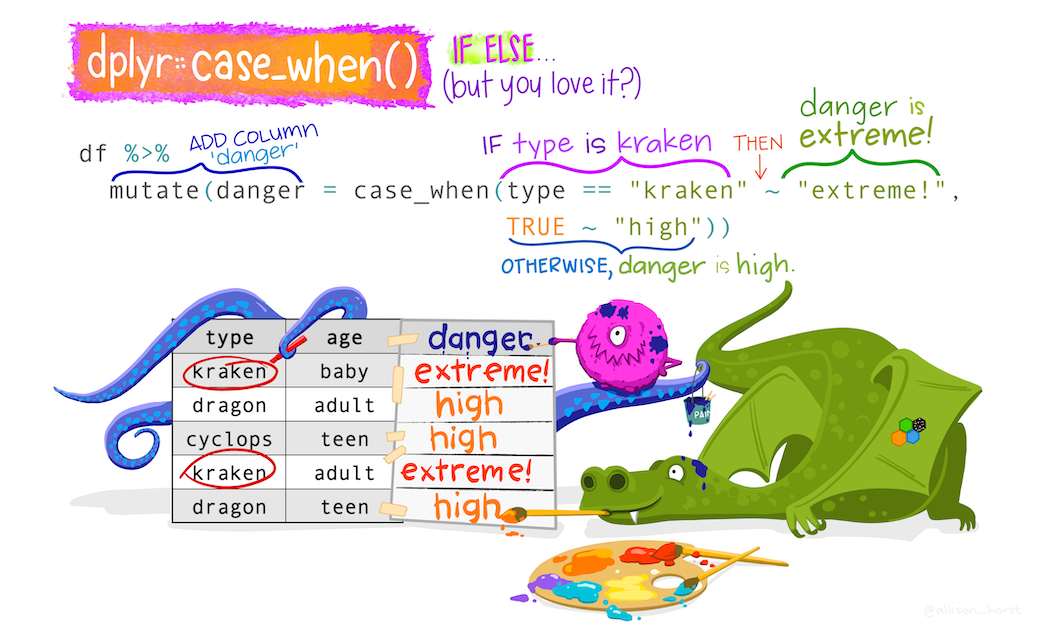 dplyr::case_when()
IF ELSE...
(but you love it?)
danger is
extreme!
ADD COLUMN
'danger'
IF type is kraken
THEN
df %>%
mutate(danger = case_when(type == "kraken" ~ "extreme!",
TRUE ~ "high"))
OTHERWISE, danger is high.
type age danger
kraken baby extreme!
dragon adult high
cyclops teen high
kraken adult extreme!
dragon teen high
PAINT
@allison_horst